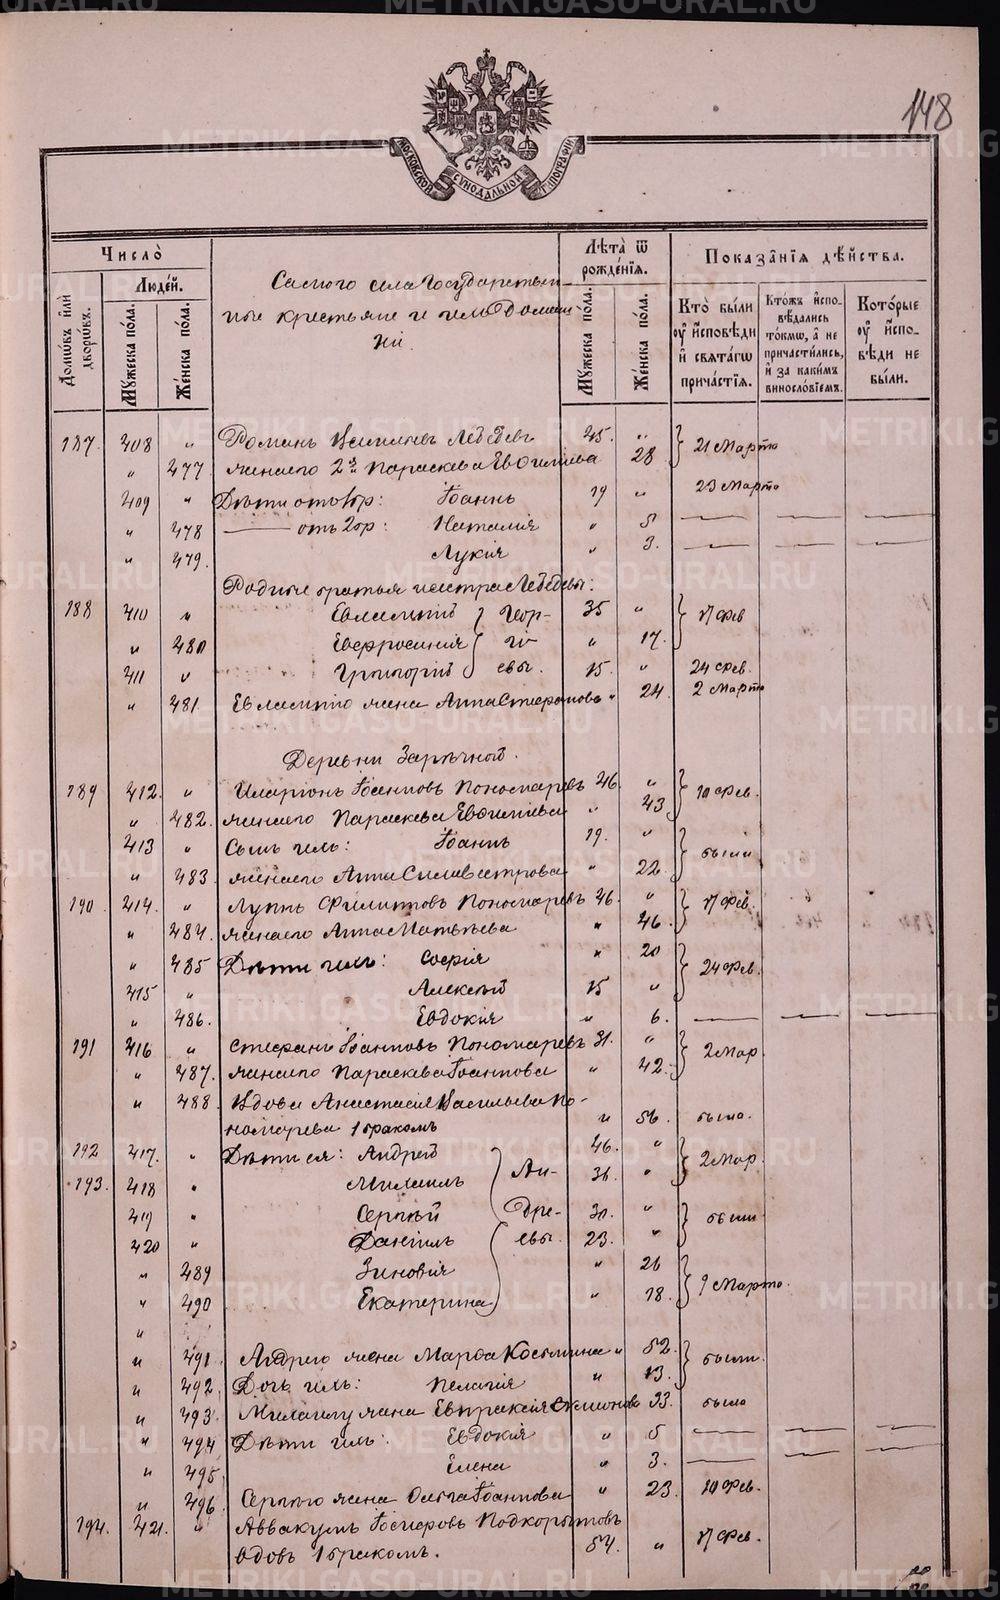 148
МОСКОВСКОЙ СУНОДАЛЬНОЙ ТИПОГРАФІИ
Число̀
Домѡвъ и҆лѝ дворѡвъ.
Люде́й.
Мꙋ́жеска по́ла.
Же́нска по́ла.
Самого села Государствен-
ные крестьяне и ихъ Домаш
ніи.
Лѣ́та ѿ рожде́нїѧ.
Мꙋ́жеска по́ла.
Же́нска по́ла.
Показа̑нїѧ дѣ́йства.
Кто̀ бы́ли оу҆ и҆сповѣди и҆ свѧта́гѡ прича́стїѧ.
Кто́жъ и҆спо- вѣдались то́кмѡ, а҆ не причасти́лись, и҆ за каки́мъ винослові́емъ.
Кото́рые оу҆ и҆спо- вѣди не бы́ли.
187. 408 " Романъ Васильевъ Лебедевъ 45. " 21 Марта
" 477 жена его 2я Параскева Евѳиміева 28
409 " Дѣти отъ 1 бр: Іоаннъ 19 " 23 Марта
" 478 отъ 2 бр: Наталія " 5
" 479. Лукія " 3.
Родные братья и сестра Лебедевы:
188 410 " Евлампій Геор- 35 " 17 Фев
" 480 Евфросинія гі- " 17.
411 " Григорій евы. 15 " 24 Фев.
" 481. Евлампія жена Анна Стефанова " 24. 2 Марта
Деревни Зарѣчной.
189 412. " Иларіонъ Іоанновъ Пономаревъ 46. " 10 Фев.
" 482. жена его Параскева Евѳиміева " 43
413 " Сынъ ихъ: Іоаннъ 19. " были
" 483. жена его Анна Силивестрова " 22
190. 414. " Луппъ Филипповъ Пономаревъ 46. " 17 Фев.
" 484. жена его Анна Матвѣева " 46.
" 485 Дѣти ихъ: Софія " 20 24 Фев.
415 " Алексѣй 15 "
" 486. Евдокія " 6.
191 416 " Стефанъ Іоанновъ Пономаревъ 31. " 2 Мар.
" 487. жена его Параскева Іоаннова " 42.
" 488. Вдова Анастасія Васильева По-
номарева 1 бракомъ " 56. была.
192 417. " Дѣти ея: Андрей 46. " 2 Мар.
193. 418 " Михаилъ Ан- 36 "
419 " Сергѣй дре- 30. " были
420 " Даніилъ евы. 23. "
" 489 Зиновія " 26 9 Марта.
" 490 Екатерина " 18.
"
" 491 Андрея жена Марѳа Косьмина " 52. были.
" 492. Дочь ихъ: Пелагія " 13.
" 493. Михаила жена Евпраксія Симеонова 33. была
" 494 Дѣти ихъ: Евдокія " 5
" 495. Елена " 3.
" 496 Сергѣя жена Ольга Іоаннова " 23. 10 Фев.
194. 421. " Аввакумъ Іосифовъ Подкорытовъ
вдовъ 1 бракомъ. 54. " 17 Фев.
METRIKI.GASO-URAL.RU